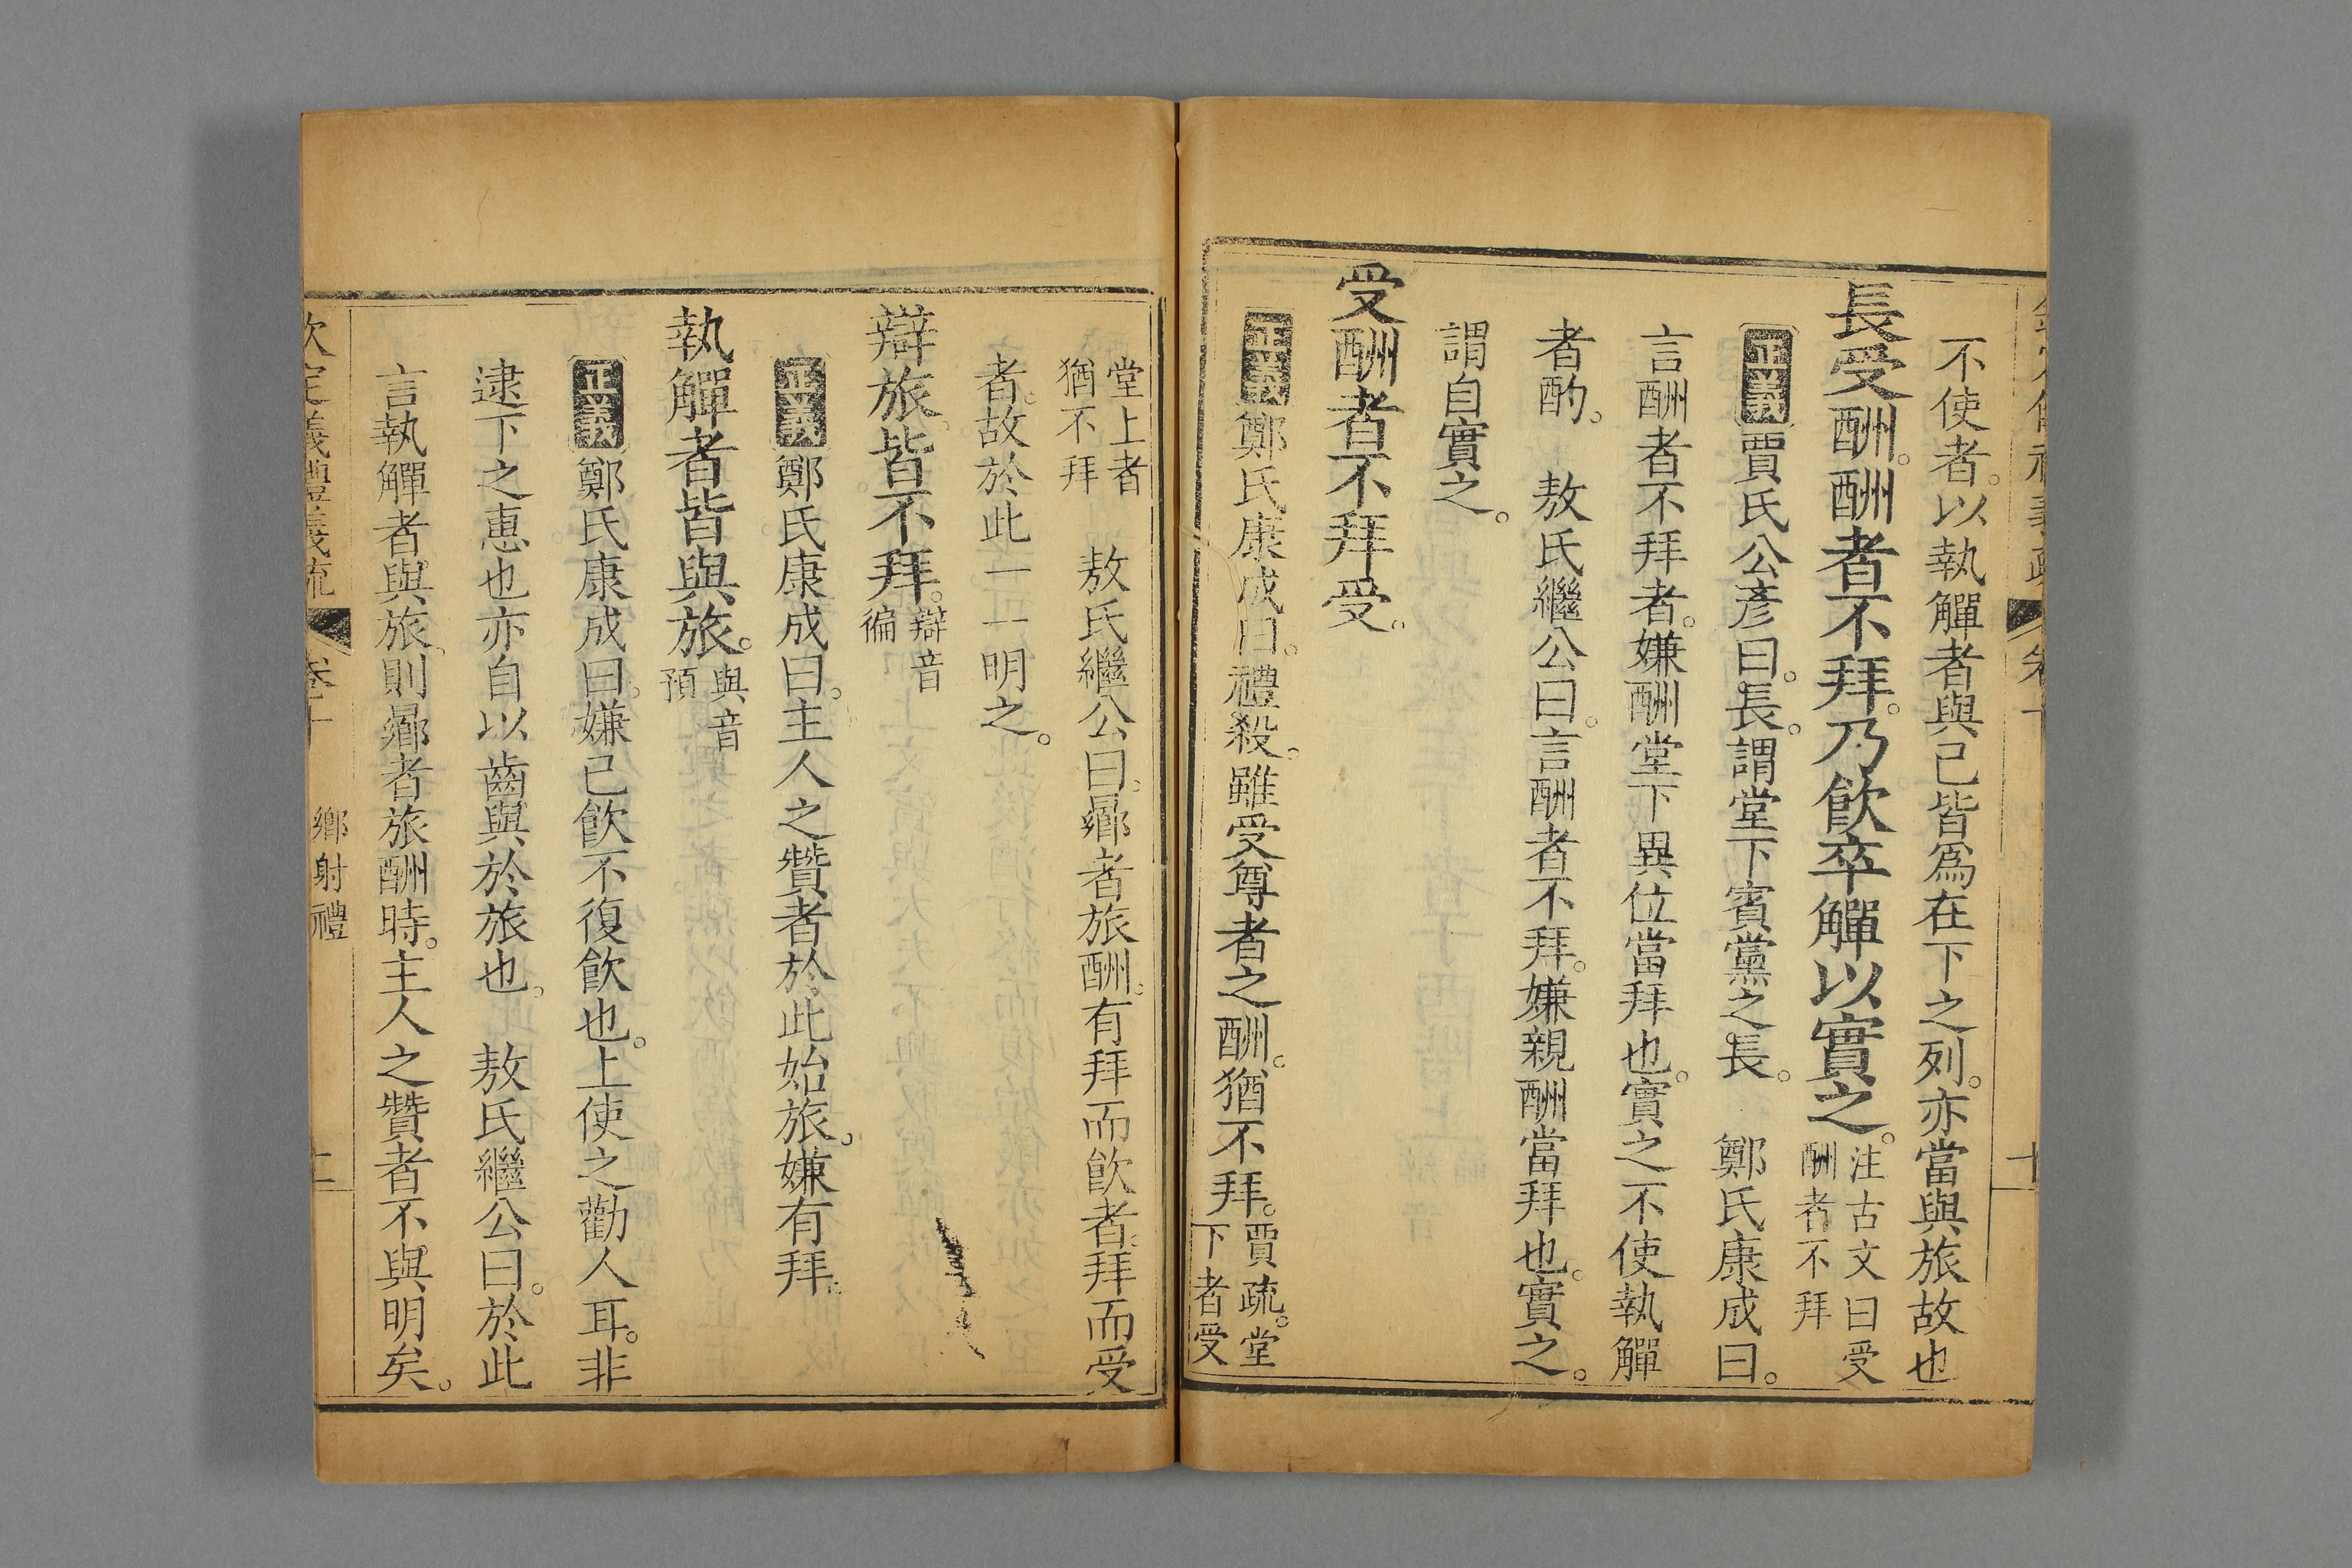 不使者。以執觶者與己皆爲在下之列。亦當與旅故也
長受酬。酬者不拜。乃飮卒觶以實之。注古文曰受酬者不拜
正義賈氏公彥曰。長。謂堂下賓黨之長。 鄭氏康成曰。
言酬者不拜者。嫌酬堂下異位當拜也。實之不使執觶
者酌。 敖氏繼公曰。言酬者不拜。嫌親酬當拜也。實之。
謂自實之。
受酬者不拜受。
正義鄭氏康成曰。禮殺。雖受尊者之酬。猶不拜。賈疏。堂下者受
堂上者猶不拜 敖氏繼公曰。曏者旅酬。有拜而飮者。拜而受
者。故於此一一明之。
辯旅。皆不拜。辯音徧
正義鄭氏康成曰。主人之贊者於此始旅。嫌有拜。
執觶者皆與旅。與音預
正義鄭氏康成曰。嫌已飮不復飮也。上使之勸人耳。非
逮下之惠也亦自以齒與於旅也。 敖氏繼公曰。於此
言執觶者與旅。則曏者旅酬時。主人之贊者不與明矣。
欽定儀禮義疏 卷十 鄕射禮